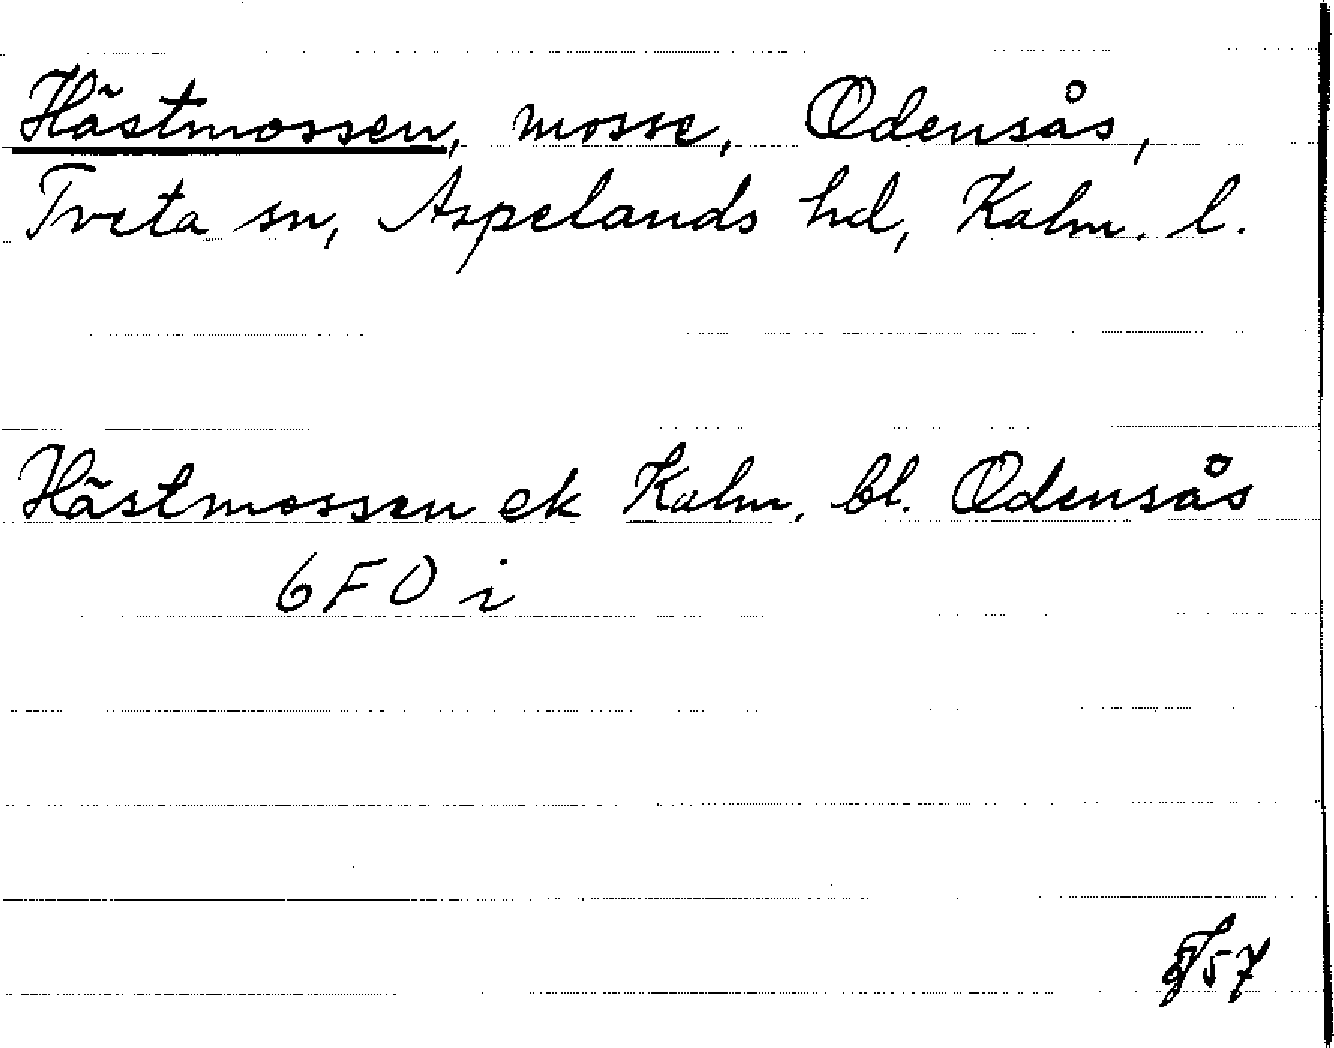 Hästmossen, mosse, Odensås,
Tveta sn, Aspelands hd, Kalm. l.
Hästmossen ek Kalm. bl. Odensås
6F0i
57